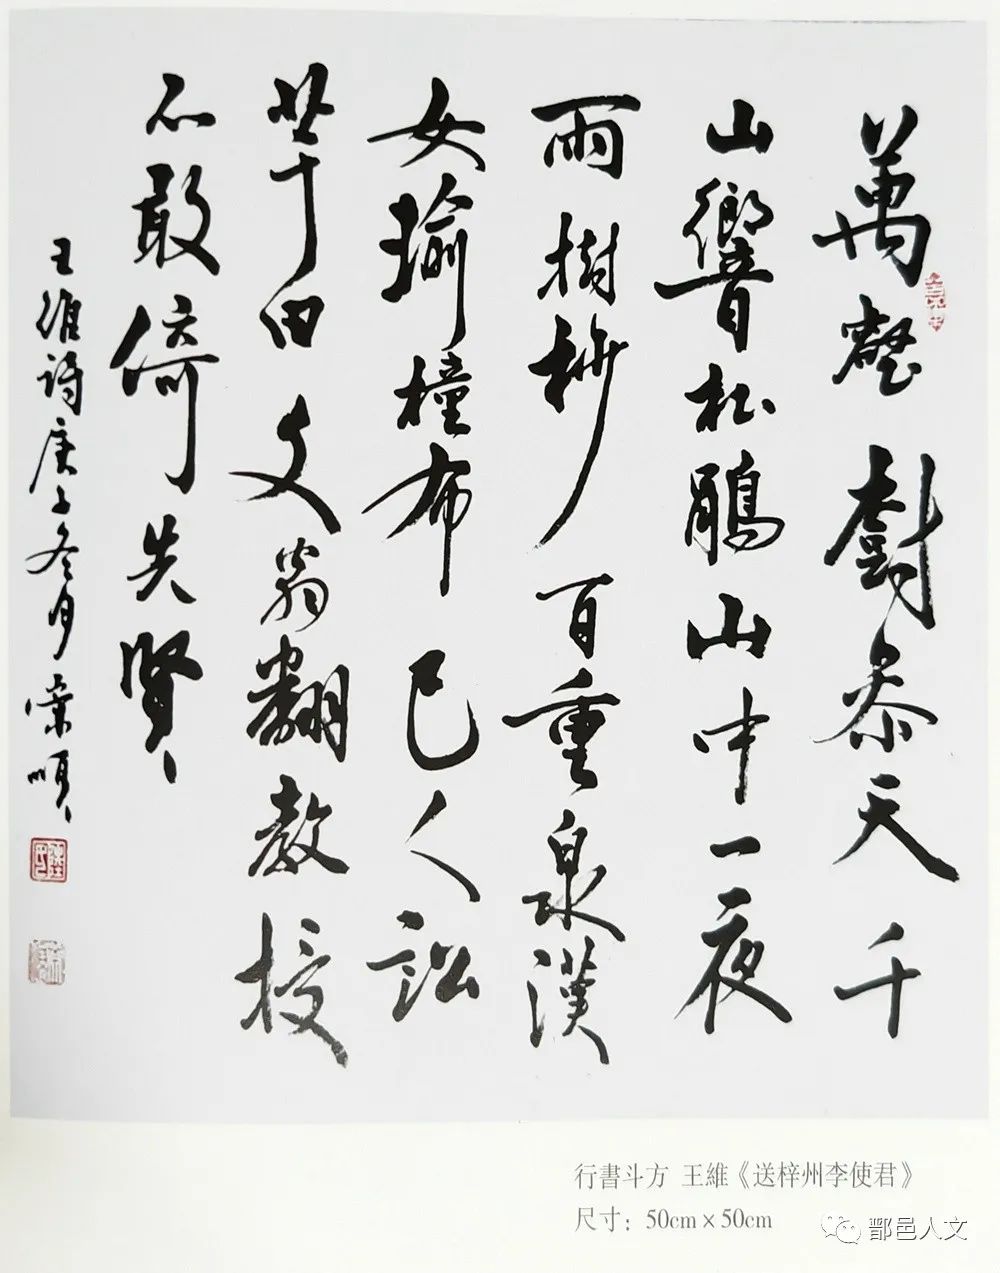 萬壑樹參天千
山響杜鵑山中一夜
雨樹杪百重泉漢
女輸橦布巴人訟
芋田文翁翻教授
不敢倚先賢
王維詩庚子冬月 順
行書斗方 王維《送梓州李使君》
尺寸：50cm×50cm
鄑邑人文